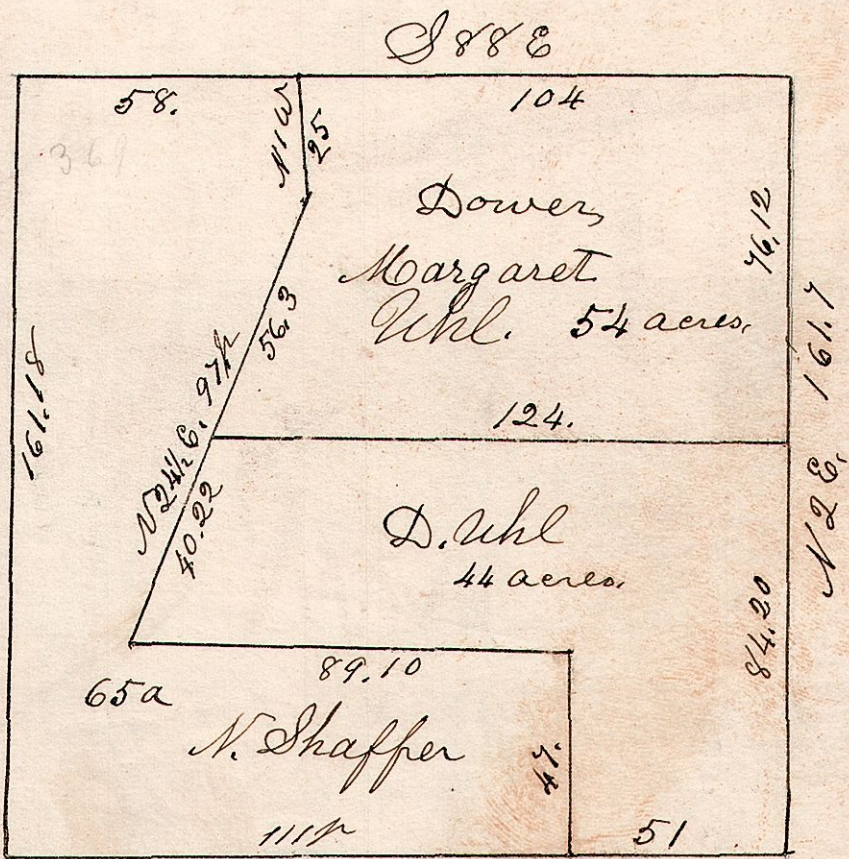 S 88 E
58.
104
369
N 1 W
25
Dower,
Margaret
Uhl. 54 acres,
76,12
N 2 E, 161.7
161.18
56,3
N 24½ E. 97p
40.22
124.
D. Uhl
44 acres,
84.20
89.10
65a
N. Shaffer
47.
111p
51